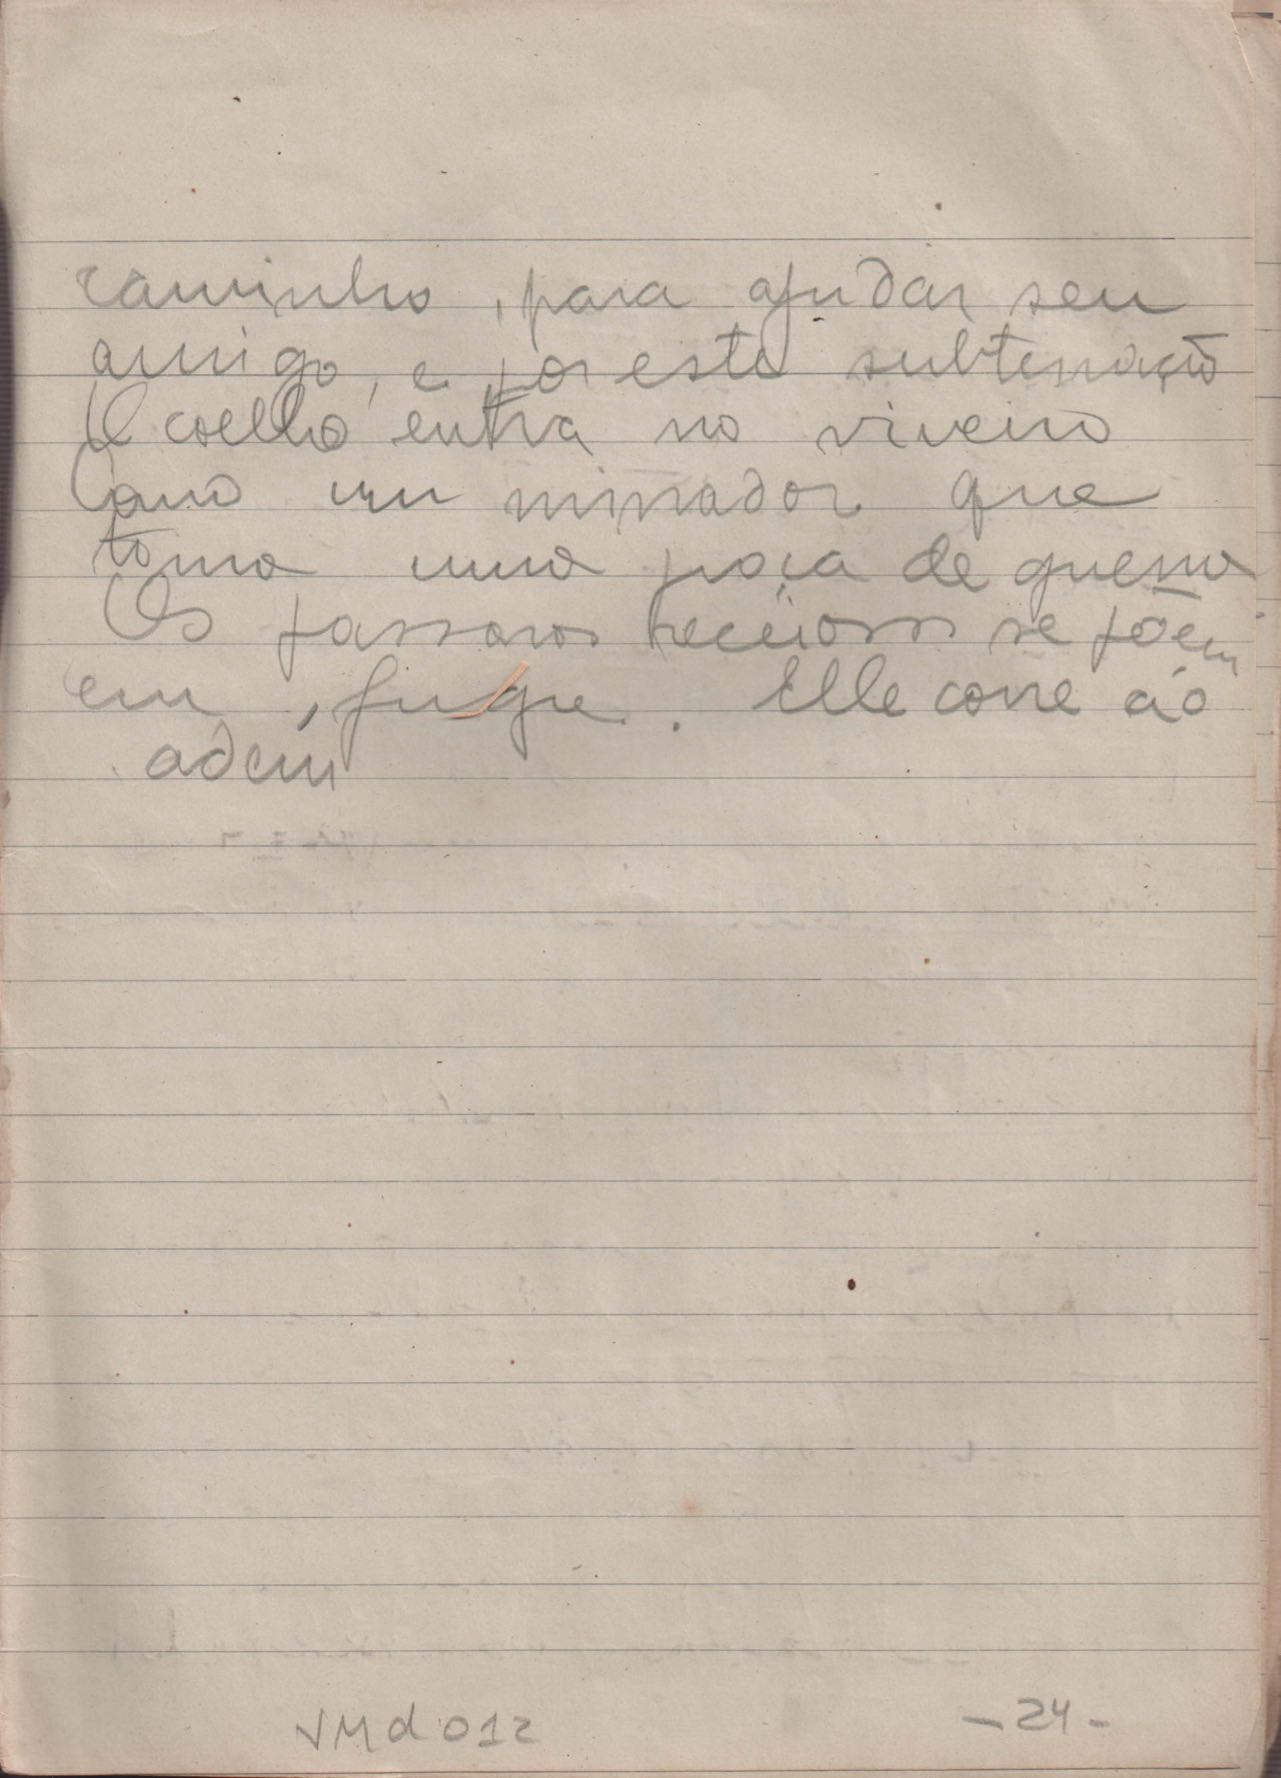 caminho, para ajudar seu
amigo, e por esta subterração
O coelho entra no viveiro
Como um minador que
toma uma praça de guerra
Os passaros receiosos se põem
em, fuga. Elle corre áo
adem
VMd012 -24-